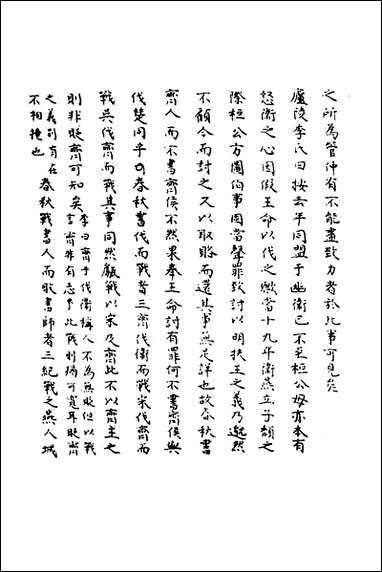 之所為管仲有不能盡致力者於此事可見矣
廬陵李氏曰按去年同盟于幽衛已不至桓公毋亦本有
怒衛之心因假王命以伐之歟當十九年衛燕立子頹之
際桓公方圖伯事固當聲罪致討以明扶王之義乃邈然
不顧今而討之又以取賂而還其事無足詳也故春秋書
齊人而不書齊侯不然果奉王命討有罪何不書齊侯與
伐楚同乎春秋書伐而戰者三齊伐衛而戰宋伐齊而
戰吳伐齊而戰其事同然甗戰以宋及齊此不以齊主之
則非貶齊可知矣李曰齊于伐衛稱人不為無貶但以戰
言齊非有志乎此戰則猶可寬耳貶齊
之義則有在
不相掩也
春秋戰書人而敗書師者三紀戰之燕人城